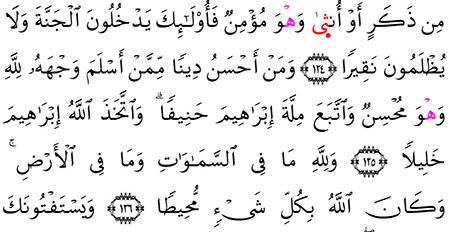 مِن ذَكَرٍ أَوْ أُنثَىٰ وَهْوَ مُؤْمِنٌ فَأُوْلَـٰٓئِكَ يَدْخُلُونَ ٱلْجَنَّةَ وَلَا
يُظْلَمُونَ نَقِيرًا ﴿١٢٤﴾ وَمَنْ أَحْسَنُ دِينًا مِّمَّنْ أَسْلَمَ وَجْهَهُۥ لِلَّهِ
وَهْوَ مُحْسِنٌ وَٱتَّبَعَ مِلَّةَ إِبْرَٰهِيمَ حَنِيفًا ۗ وَٱتَّخَذَ ٱللَّهُ إِبْرَٰهِيمَ
خَلِيلًا ﴿١٢٥﴾ وَلِلَّهِ مَا فِى ٱلسَّمَـٰوَٰتِ وَمَا فِى ٱلْأَرْضِ ۚ
وَكَانَ ٱللَّهُ بِكُلِّ شَىْءٍ مُّحِيطًا ﴿١٢٦﴾ وَيَسْتَفْتُونَكَ